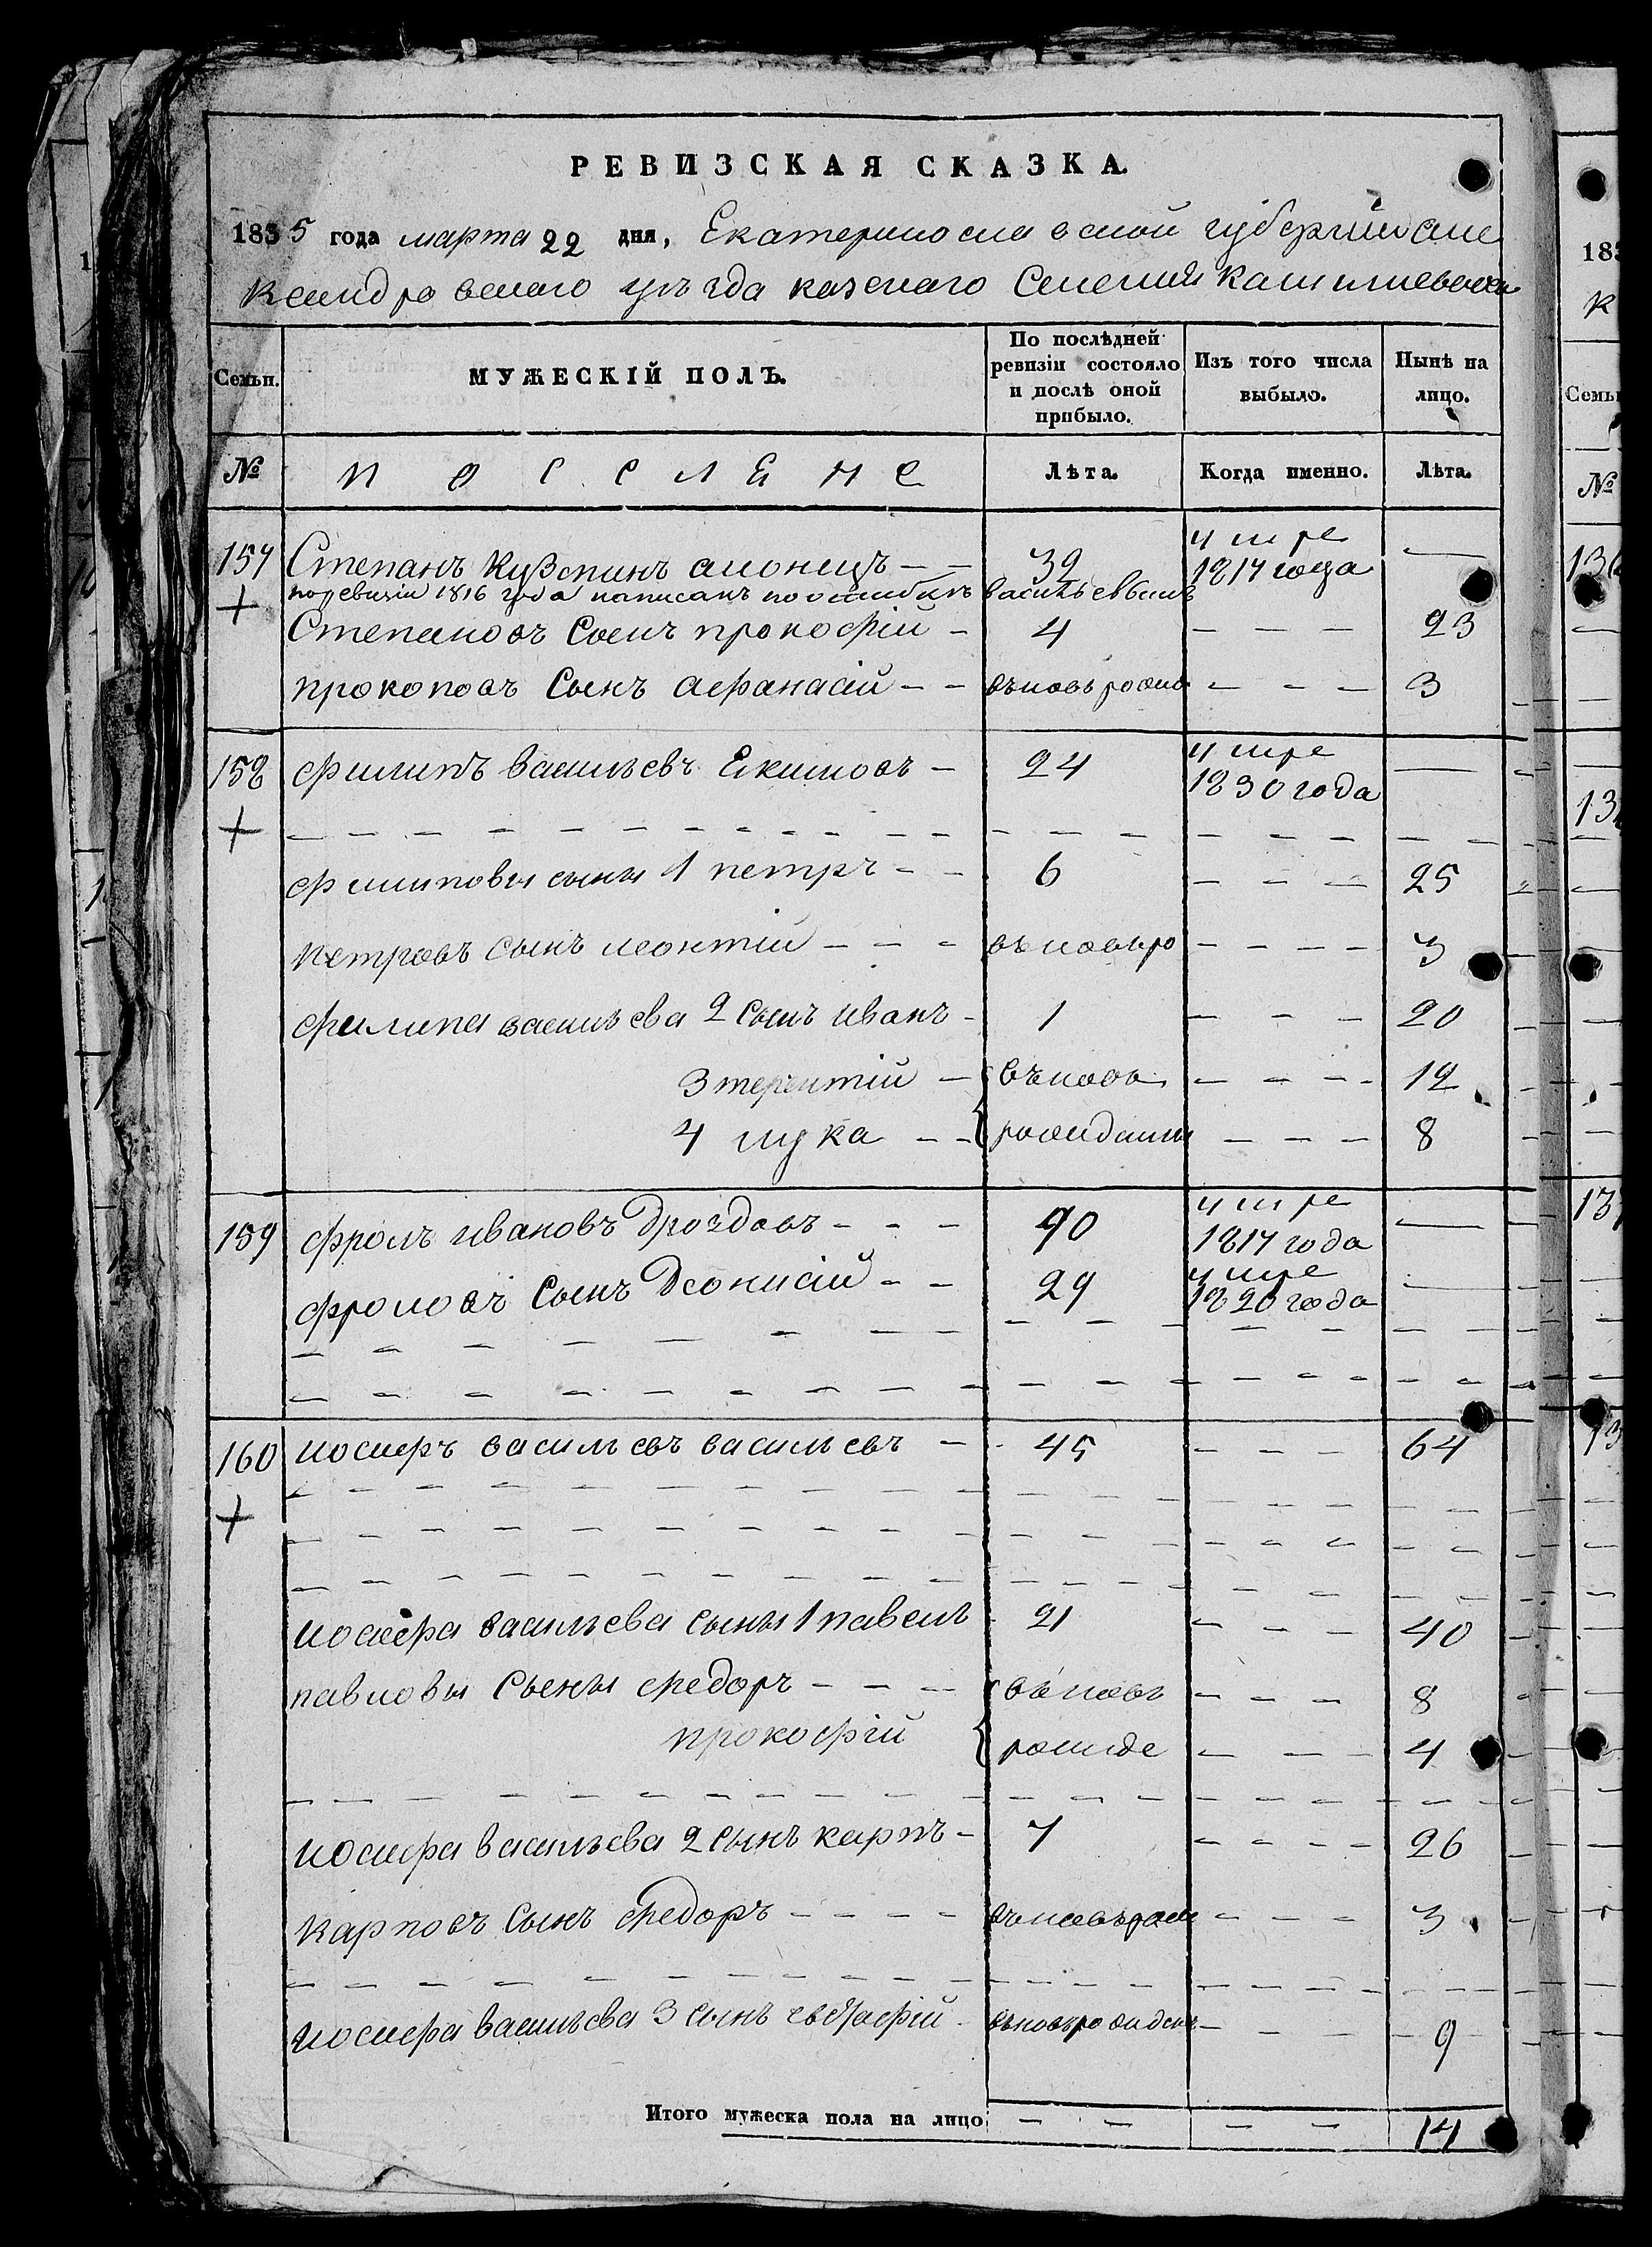 РЕВИЗСКАЯ СКАЗКА.
1835 года марта 22 дня, Екатериносла вской губерніи але
ксандро вскаго уѣзда казенаго Селения
Семьи. МУЖЕСКІЙ ПОЛЪ. По послѣдней ревизіи состояло и послѣ оной прибыло. Изъ того числа выбыло. Нынѣ на лицо.
№ поселене Лѣта. Когда именно. Лѣта.
157 Степанъ Кузминъ 39 умре 1817 года —
+ поревизіи 1816 года написанъ поошибкѣ васильевымъ
Степановъ Сынъ прокофій - 4 — — — 23
прокоповъ Сынъ афанасій - - вьновь рожд — — — 3
158 филипъ васильевъ Екимовъ - 24 умре 1830 года —
+
филиповы сыны 1 петръ - - 6 — — — 25
петровъ сынъ леонтій - - - вьновь ро — — — — 3
филипа васильева 2 сынъ иванъ - 1 — — — 20
3 терентій - вьновь — — — — 12
4 лука - - рожденны — — — 8
159 фролъ ивановъ Дроздовъ - - - 70 умре 1817 года —
фроловъ Сынъ Деонисій - - 29 умре 1820 года —
160 иосифъ васильевъ васильевъ - 45 — — — 64
+
иосифа васильева сыны 1 павелъ 21 — — — 40
павловы Сыны федоръ - - - вьновь — — — 8
прокофій рожде — — — 4
иосифа васильева 2 сынъ карпъ - 7 — — — — 26
карповъ Сынъ Федоръ - - - - вьновь рож — — — 3
иосифа васильева 3 сынъ евстафій - вьновь рожден — — — 9
Итого мужеска пола на лицо — — — — 14
183
к
Семьи
№